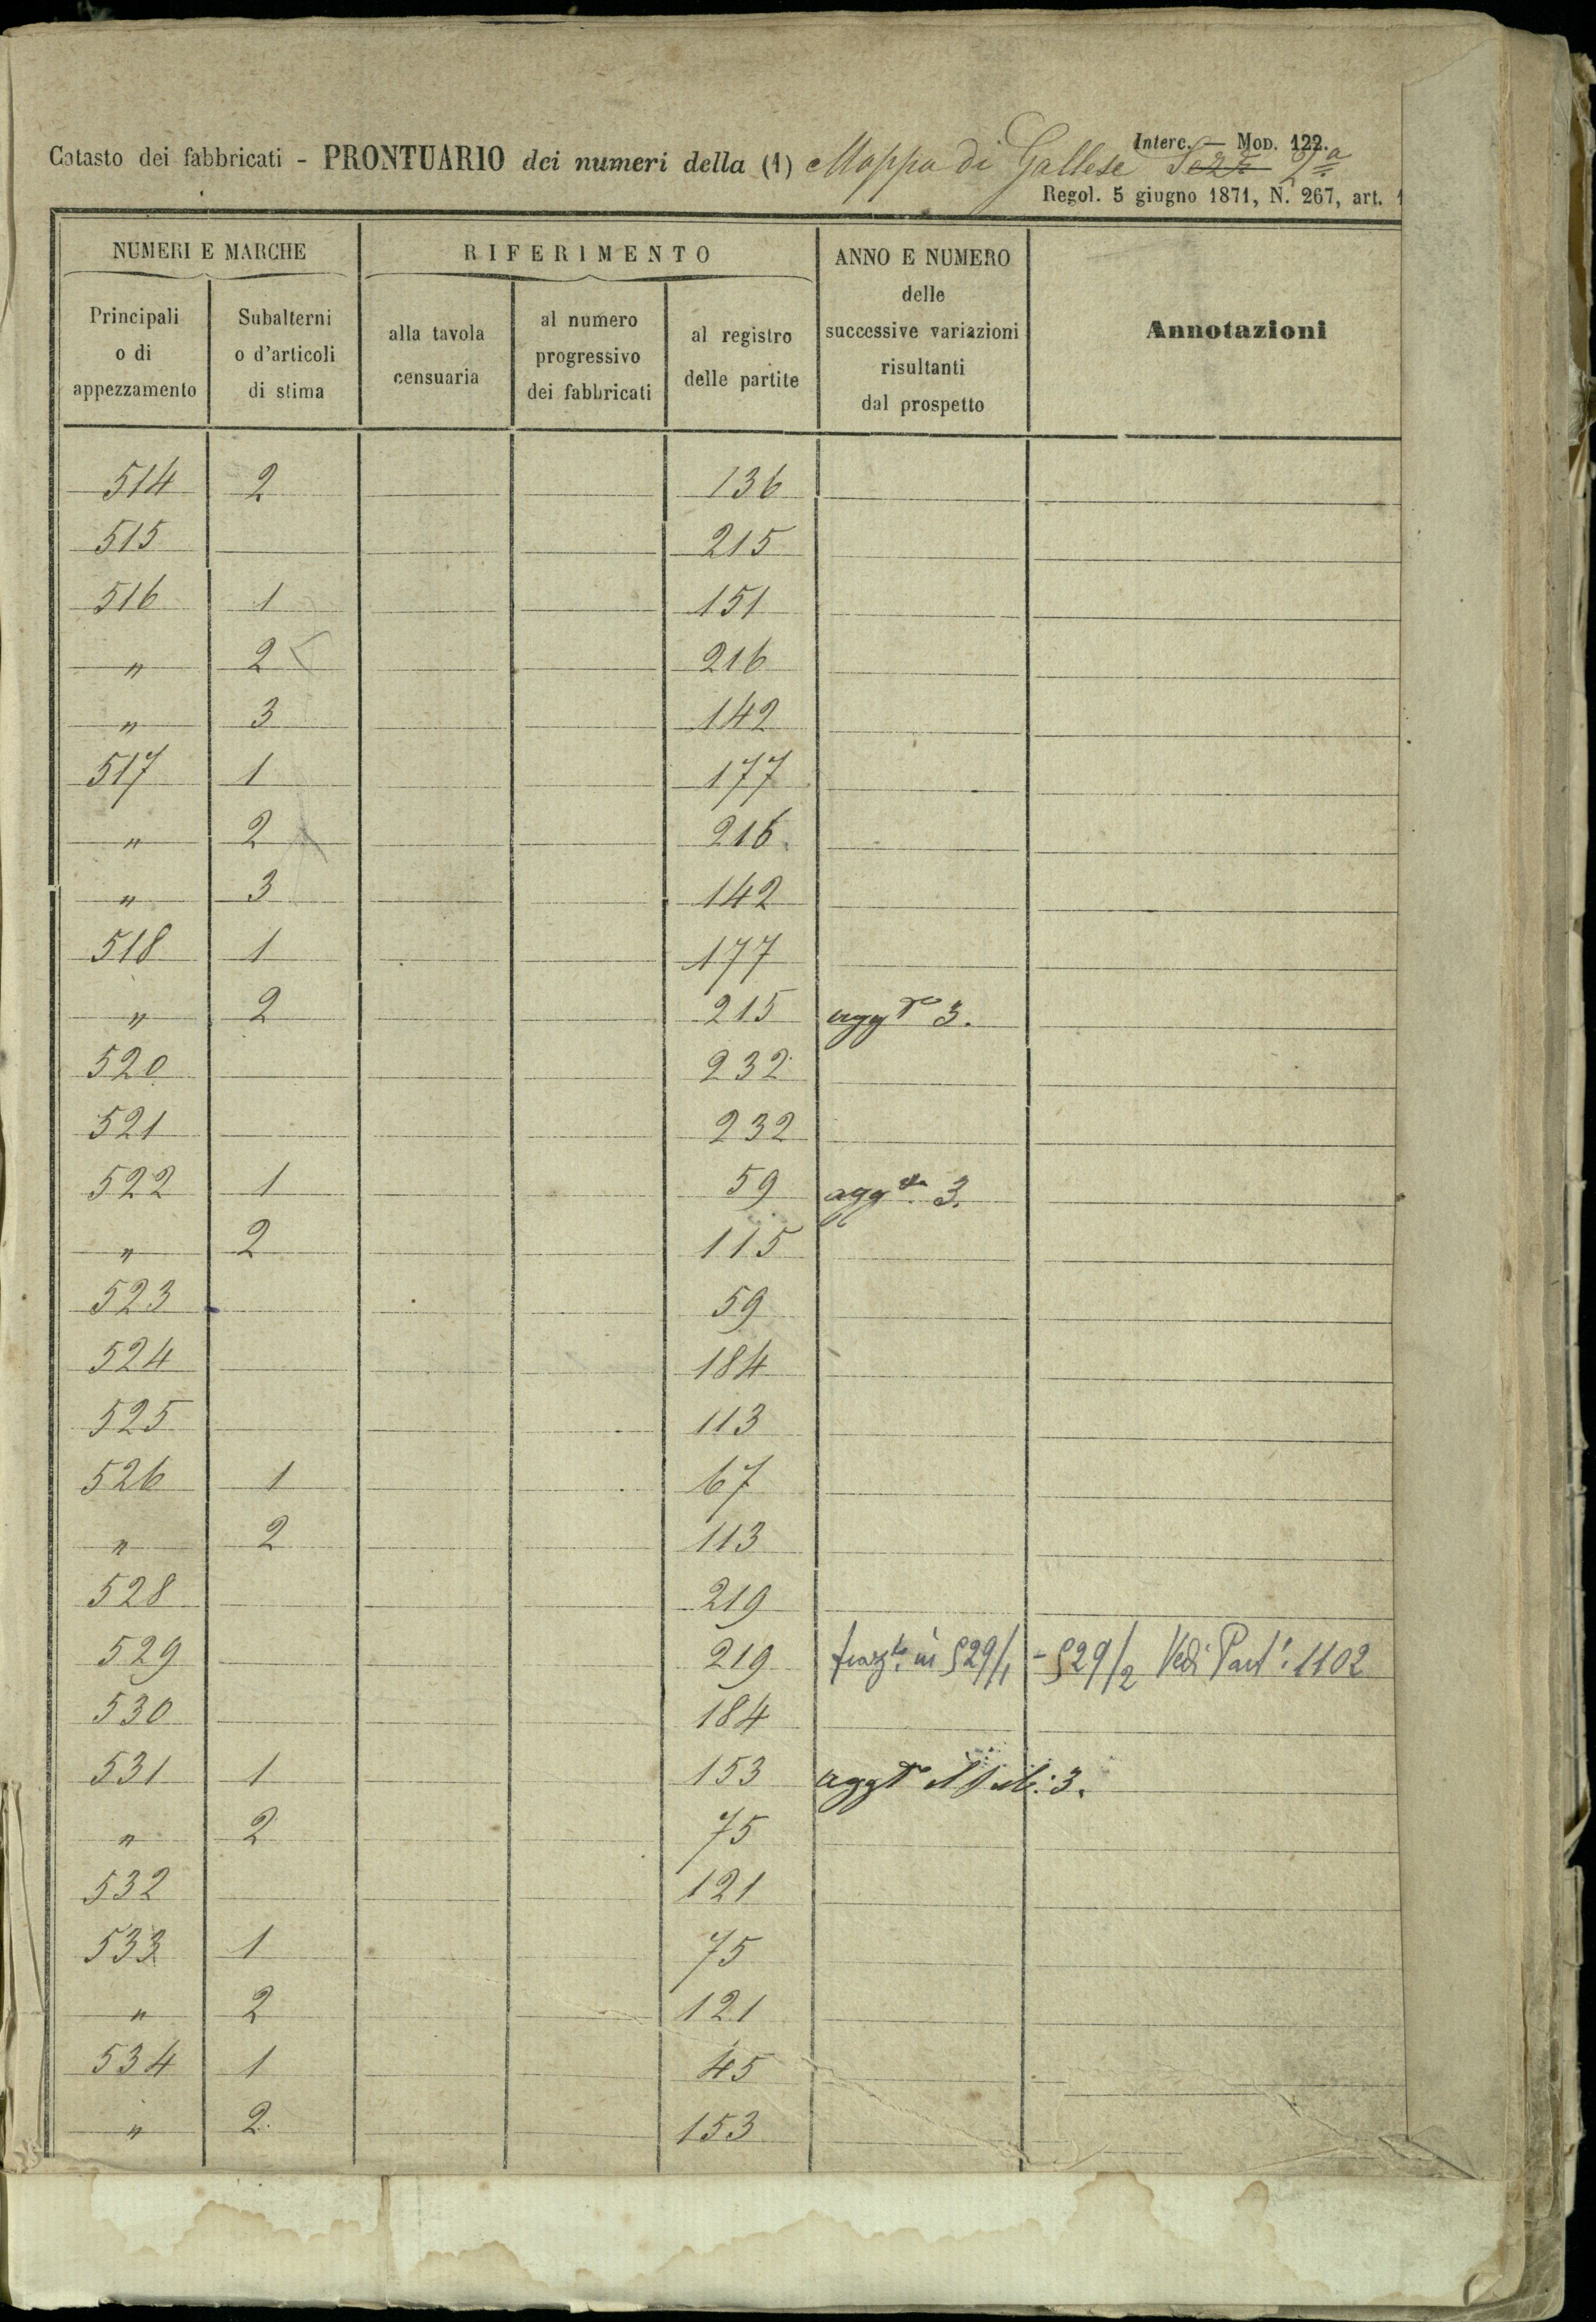 Interc. — Mod. 122.
Catasto dei fabbricati - PRONTUARIO dei numeri della (1) Mappa di Gallese Sez.e 2a
Regol. 5 giugno 1871, N. 267, art.
NUMERI E MARCHE RIFERIMENTO ANNO E NUMERO delle successive variazioni risultanti dal prospetto Annotazioni
Principali o di appezzamento Subalterni o d'articoli di stima alla tavola censuaria al numero progressivo dei fabbricati al registro delle partite
514 2 136
515 215
516 1 151
" 2 216
" 3 142
517 1 177
" 2 216
" 3 142
518 1 177
" 2 215 aggto 3.
520 232
521 232
522 1 59 agg 3.
" 2 115
523 59
524 184
525 113
526 1 67
" 2 113
528 219
529 219 frazto in 529/1 - 529/2 Vedi Part: 1102
530 184
531 1 153 aggto 3.
" 2 75
532 121
533 1 75
" 2 121
534 1 45
" 2 153